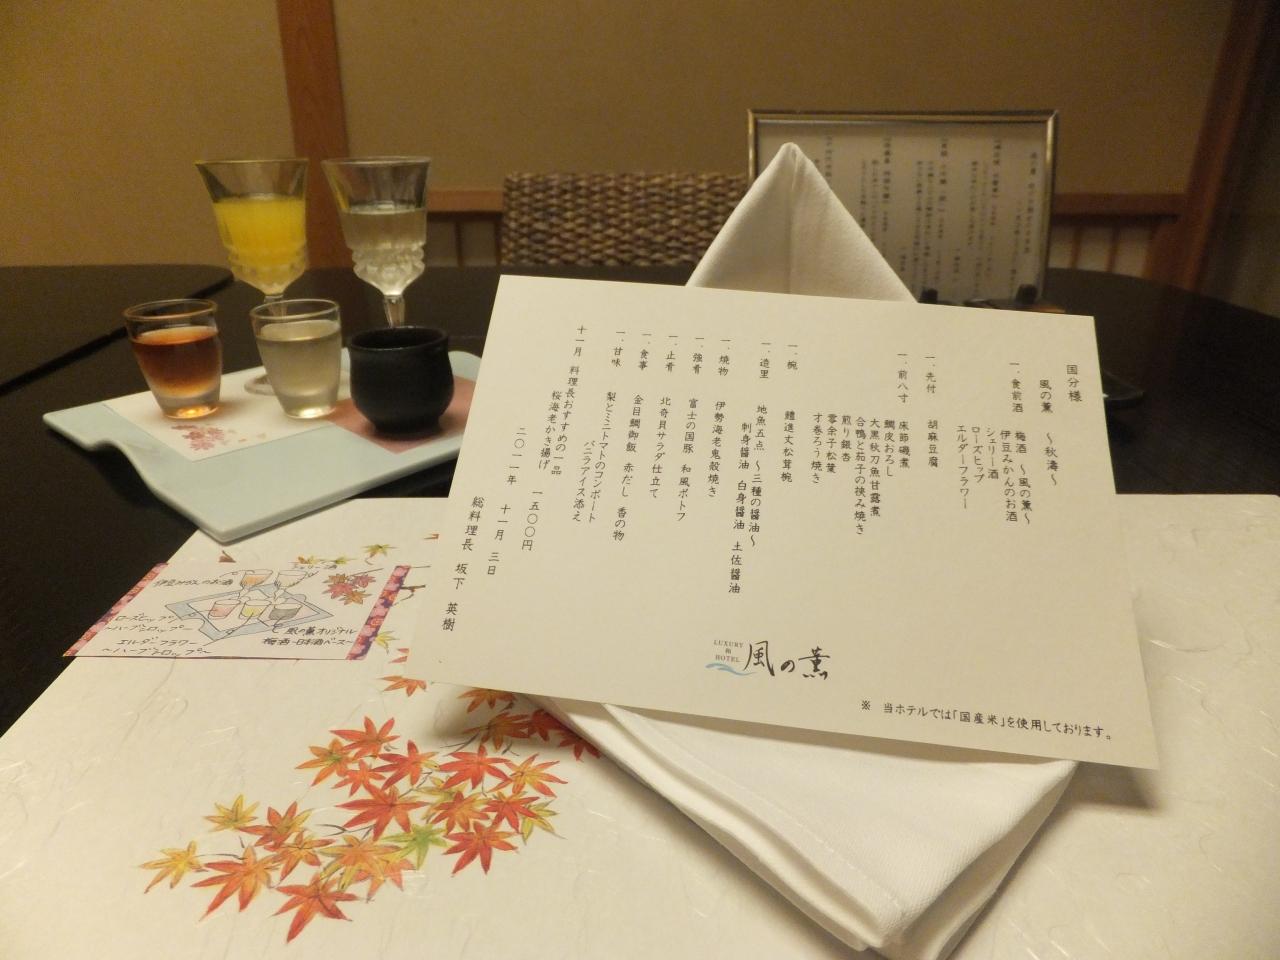 国分様
風の薫 ～秋濤～
一、食前酒 梅酒 ～風の薫～
伊豆みかんのお酒
シェリー酒
ローズヒップ
エルダーフラワー
一、先付 胡麻豆腐
一、前八寸 床節磯煮
鯛皮おろし
大黒秋刀魚甘露煮
合鴨と茄子の挟み焼き
煎り銀杏
零余子松葉
才巻ろう焼き
一、椀 鱧進丈松茸椀
一、造里 地魚五点 ～三種の醤油～
刺身醤油 白身醤油 土佐醤油
一、焼物 伊勢海老鬼殻焼き
一、強肴 富士の国豚 和風ポトフ
一、止肴 北寄貝サラダ仕立て
一、食事 金目鯛御飯 赤だし 香の物
一、甘味 梨とミニトマトのコンポート
バニラアイス添え
十一月 料理長おすすめの一品
桜海老かき揚げ 一五〇〇円
二〇一一年 十一月 三日
総料理長 坂下 英樹
LUXURY
和
HOTEL
風の薫
※ 当ホテルでは「国産米」を使用しております。
シェリー酒
伊豆みかんのお酒
ローズヒップ
～ハーブシロップ～
エルダーフラワー
～ハーブシロップ～
風の薫オリジナル
梅酒-日本酒ベース～